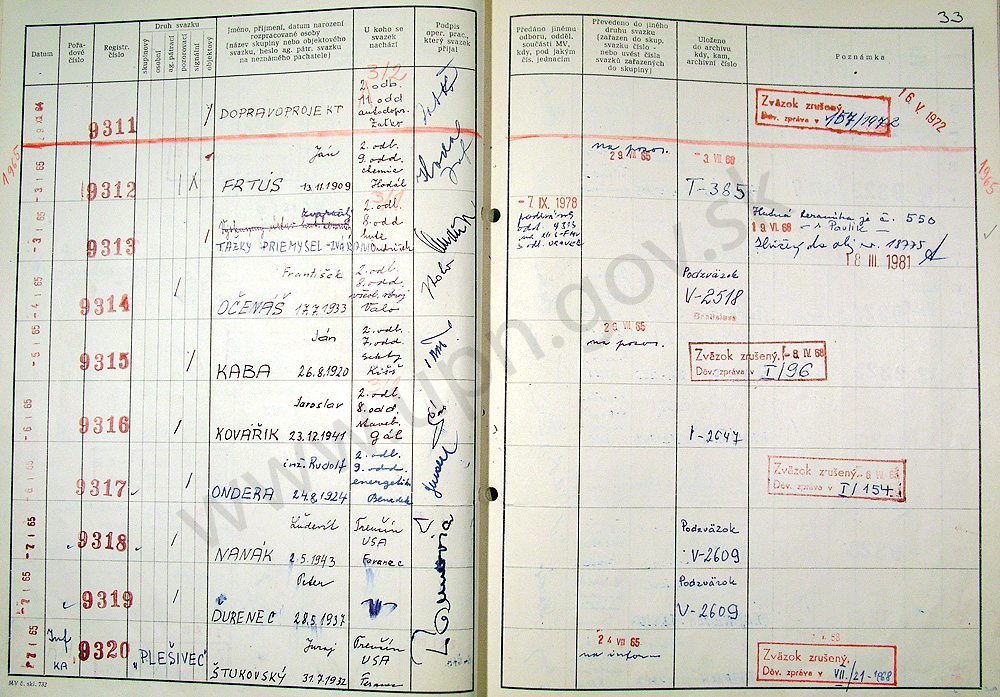 33
Datum
Pořadové číslo
Registr. číslo
Druh svazku
skupinový
osobní
ag. pátrací
pozorovací
signální
objektový
Jméno, příjmení, datum narození
rozpracované osoby
(název skupiny nebo objektového
svazku, heslo ag. pátr. svazku
na neznámého pachatele)
U koho se
svazek
nachází
Podpis
oper. prac.,
který svazek
přijal
Předáno jinému
odboru, odděl.
součásti MV,
kdy, pod jakým
čís. jednacím
Převedeno do jiného
druhu svazku
(zařazen do skup.
svazku číslo -
nebo uvést čísla
svazků zařazených
do skupiny)
Uloženo
do archivu
kdy, kam,
archivní číslo
Poznámka
9311
DOPRAVOPROJEKT
3/2
2. odb.
11. odd
autodopr.
Zaťko
Zväzok zrušený.
Dôv. zpráva v 157/1972
16. V. 1972
1965
-3 I 65
9312
Ján
FRTÚS 13.11.1909
2. odb.
9. odd.
chemie
Hodál
na pozor.
29 VII 65
-3. VII 68
T-385
1965
-3 I 65
9313
ŤAŽKÝ PRIEMYSEL - ZVÄZ
3/1
2. odb.
8. odd
hute
-7 IX. 1978
Hutná keramika je č. 550
19. VI. 68 - Pavlik -
18775
18 III. 1981
-4 I 65
9314
František
OČENÁŠ 17.7.1933
2. odb.
8. odd.
Valo
Podzväzok
V-2518
Bratislava
-5 I 65
9315
Ján
KABA 26.8.1920
2. odb.
7. odd
Kišš
20. VII. 65
na pozor.
Zväzok zrušený. -8. IV. 68
Dôv. zpráva v I/96
-6 I 65
9316
Jaroslav
KOVÁŘIK 23.12.1941
3/1
2. odb.
8. odd.
staveb.
Gál
I-2647
-6 I 65
9317
inž. Rudolf
ONDERA 24.8.1924
2. odb.
9. odd.
energetik
Benedek
Zväzok zrušený.
Dôv. zpráva v I/154
-7 I 65
9318
Ľudevít
NANÁK 2.5.1943
Trenčín
USA
Podzväzok
V-2609
-7 I 65
9319
Peter
ĎURENEC 28.5.1937
Podzväzok
V-2609
-7 I 65
Inf
KA
9320
"PLEŠIVEC"
Juraj
ŠTUKOVSKÝ 31.7.1932
Trenčín
USA
24 VII 65
na inform
Zväzok zrušený.
Dôv. zpráva v VII./21-1968
MV č. skl. 732
www.upn.gov.sk